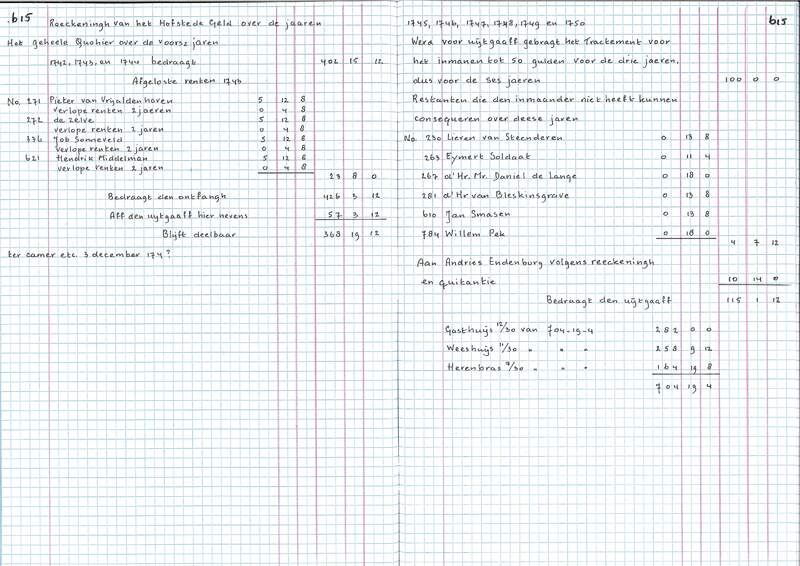 b15 Roeckeningh van het Hofstede Geld over de jaaren
Het geheele Quohier over de voors: jaren
1742, 1743, en 1744 bedraagt 402 15 12
Afgeloste renten 1743
No. 271 Pieter van Vrijaldenhoven 5 12 8
verlope renten 2 jaeren 0 4 8
272 de zelve 5 12 8
verlope renten 2 jaren 0 4 8
336 Job Sonneveld 5 12 8
verlope renten 2 jaren 0 4 8
621 Hendrik Middelman 5 12 8
verlope renten 2 jaren 0 4 8
23 8 0
Bedraagt den ontfangh 426 3 12
Aff den uytgaaff hier nevens 57 3 12
Blijft deelbaar 368 19 12
ter camer etc. 3 december 174?
1745, 1746, 1747, 1748, 1749 en 1750 b15
Werd voor uijtgaaff gebragt het Tractement voor
het inmanen tot 50 gulden voor de drie jaeren,
dus voor de ses jaeren 100 0 0
Restanten die den inmaander niet heeft kunnen
consequeren over deese jaren
No. 230 Lieren van Steenderen 0 13 8
263 Eymert Soldaat 0 11 4
267 d'Hr. Mr. Daniel de Lange 0 18 0
281 d'Hr van Bleskinsgrave 0 13 8
610 Jan Smasen 0 13 8
784 Willem Pek 0 18 0
4 7 12
Aan Andries Endenburg volgens reeckeningh
en quitantie 10 14 0
Bedraagt den uijtgaaff 115 1 12
Gasthuijs 12/30 van 704-19-4 282 0 0
Weeshuijs 11/30 " " " 258 9 12
Herenbras 7/30 " " " 164 19 8
704 19 4